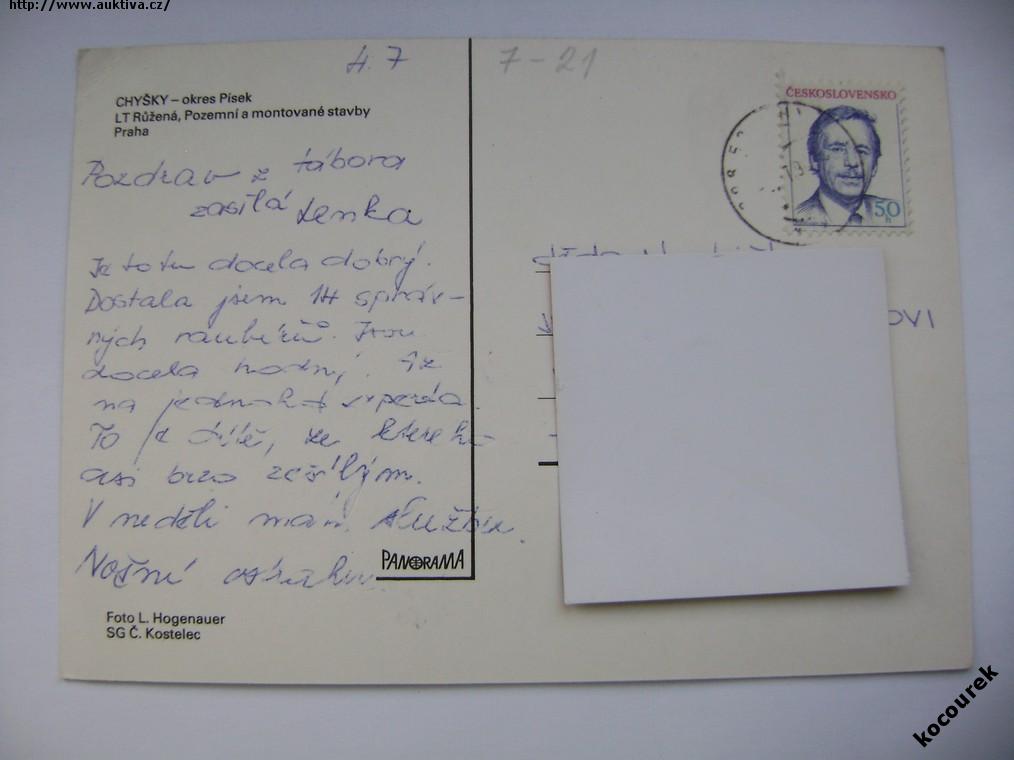 http://www.auktiva.cz/
4.7
7-21
CHYŠKY – okres Písek
LT Růžená, Pozemní a montované stavby
Praha
ČESKOSLOVENSKO
50
h
Pozdrav z tábora
zasílá Lenka
Je to tu docela dobrý.
Dostala jsem 14 správ-
ných raubířů. Jsou
docela hodní. Až
na jednoho
To je dítě, ze kterého
asi brzo zešílým.
V neděli mám službu.
Noční ostrahu
OVI
PANORAMA
Foto L. Hogenauer
SG Č. Kostelec
kocourek